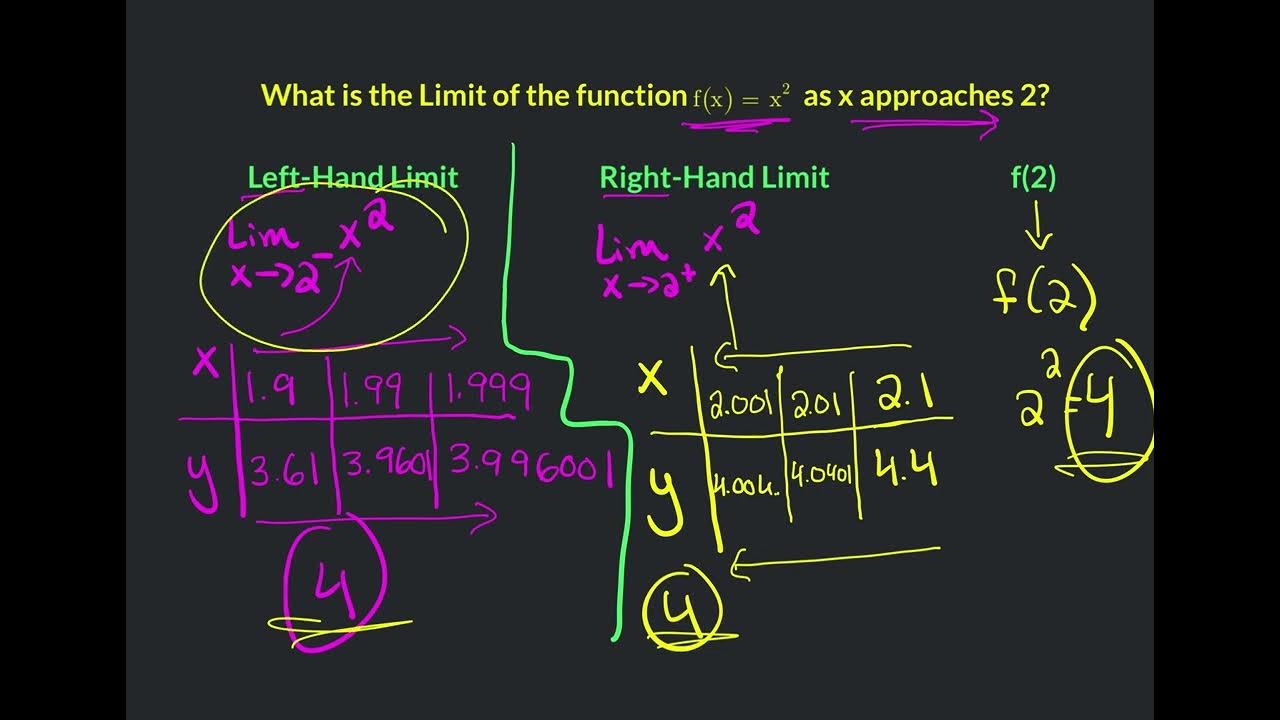 What is the Limit of the function f(x) = x² as x approaches 2?
Left-Hand Limit
Lim x²
x→2⁻
x 1.9 1.99 1.999
y 3.61 3.9601 3.996001
4
Right-Hand Limit
Lim x²
x→2⁺
x 2.001 2.01 2.1
y 4.004.. 4.0401 4.4
4
f(2)
f(2)
2² = 4